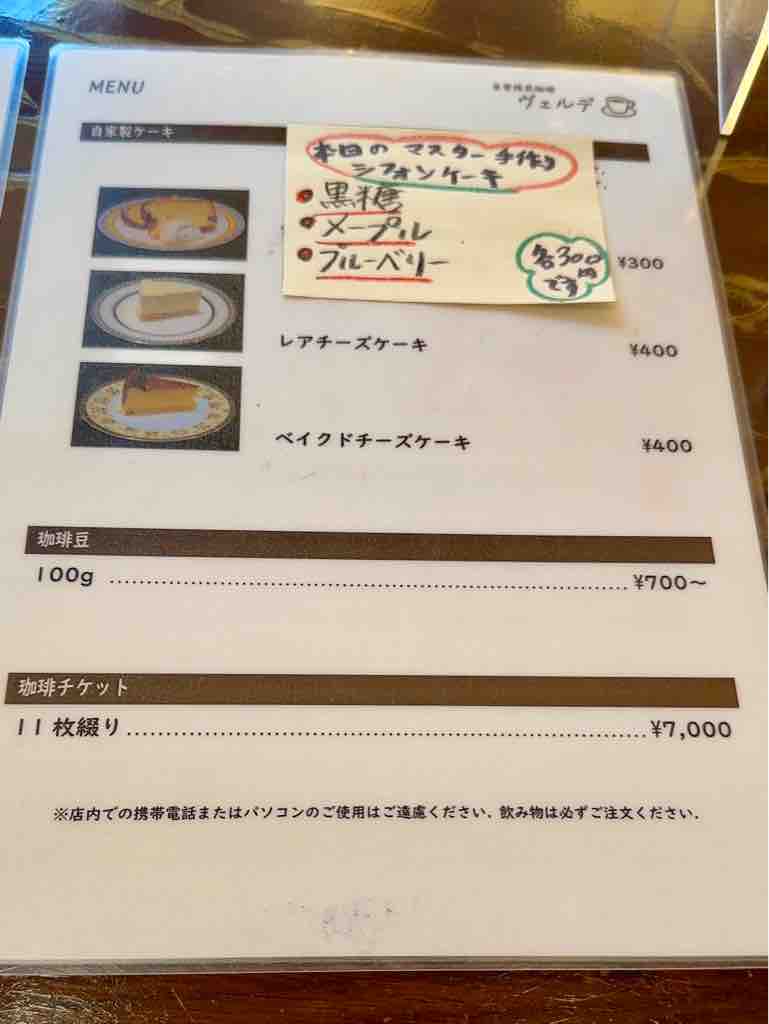 MENU
自家焙煎珈琲
ヴェルデ
自家製ケーキ
本日のマスター手作り
シフォンケーキ
黒糖
メープル
ブルーベリー
各300円
です
¥300
レアチーズケーキ ¥400
ベイクドチーズケーキ ¥400
珈琲豆
100g ¥700〜
珈琲チケット
11枚綴り ¥7,000
※店内での携帯電話またはパソコンのご使用はご遠慮ください．飲み物は必ずご注文ください．